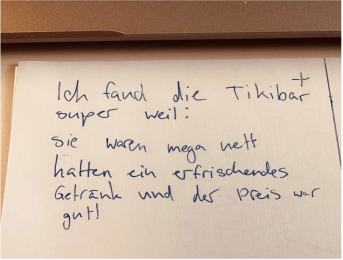 Ich fand die Tikibar +
super weil:
sie waren mega nett
hatten ein erfrischendes
Getränk und der Preis war
gut!